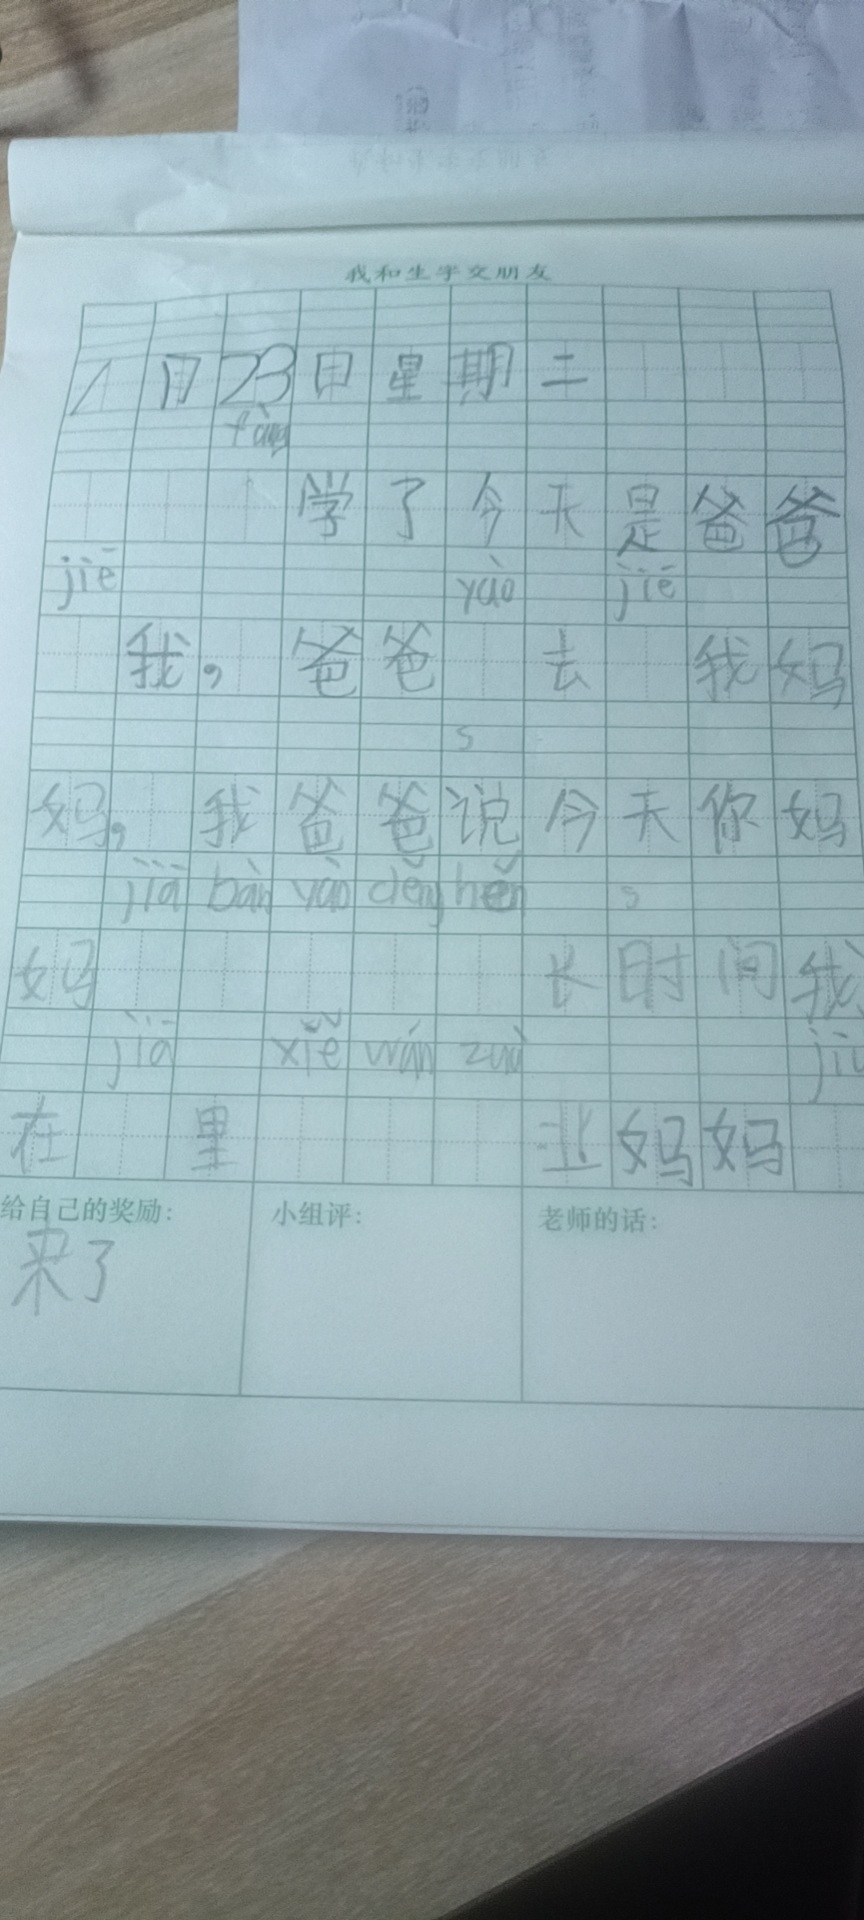 我和生字交朋友
1月23日星期二
fàng
学了今天是爸爸
jiē yào jiē
我，爸爸 去 我妈
s
妈，我爸爸说今天你妈
jiā bān yào děng hěn s
妈 长时间我
jiā xiě wán zuò
在 里 业妈妈
给自己的奖励： 小组评： 老师的话：
来了